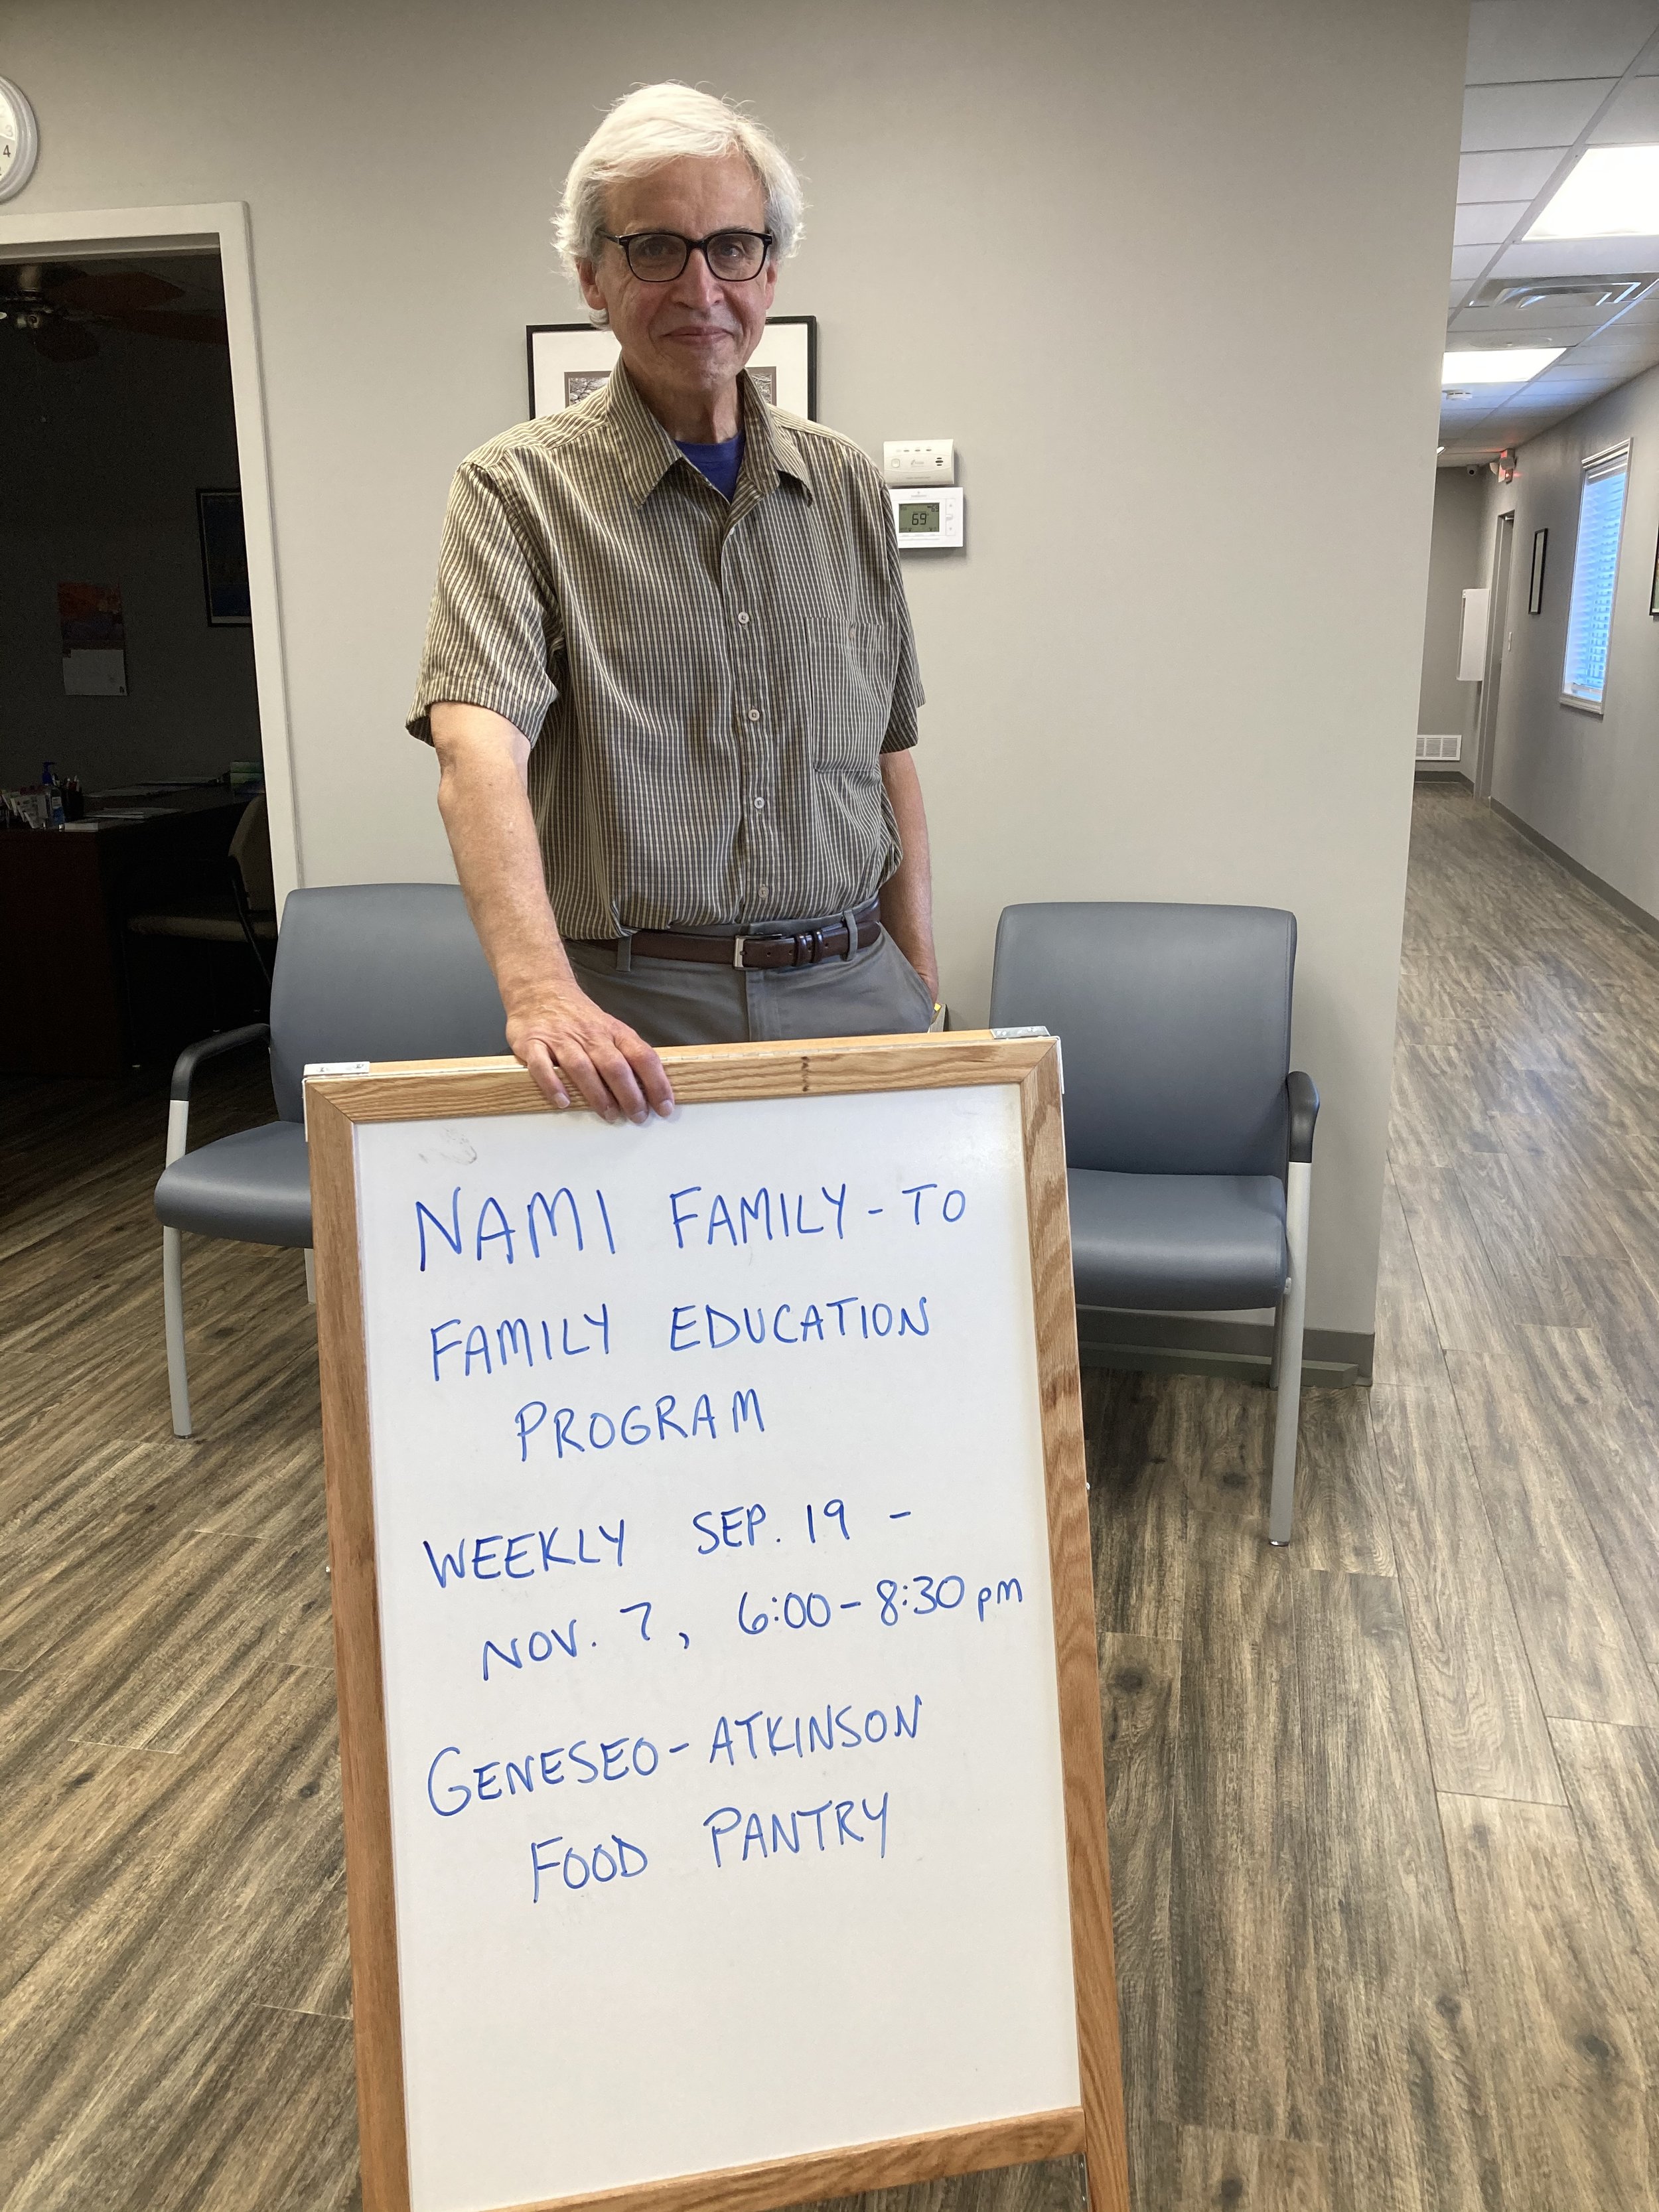 4
69
NAMI FAMILY-TO
FAMILY EDUCATION
PROGRAM
WEEKLY SEP. 19 -
NOV. 7, 6:00-8:30 pm
GENESEO-ATKINSON
FOOD PANTRY